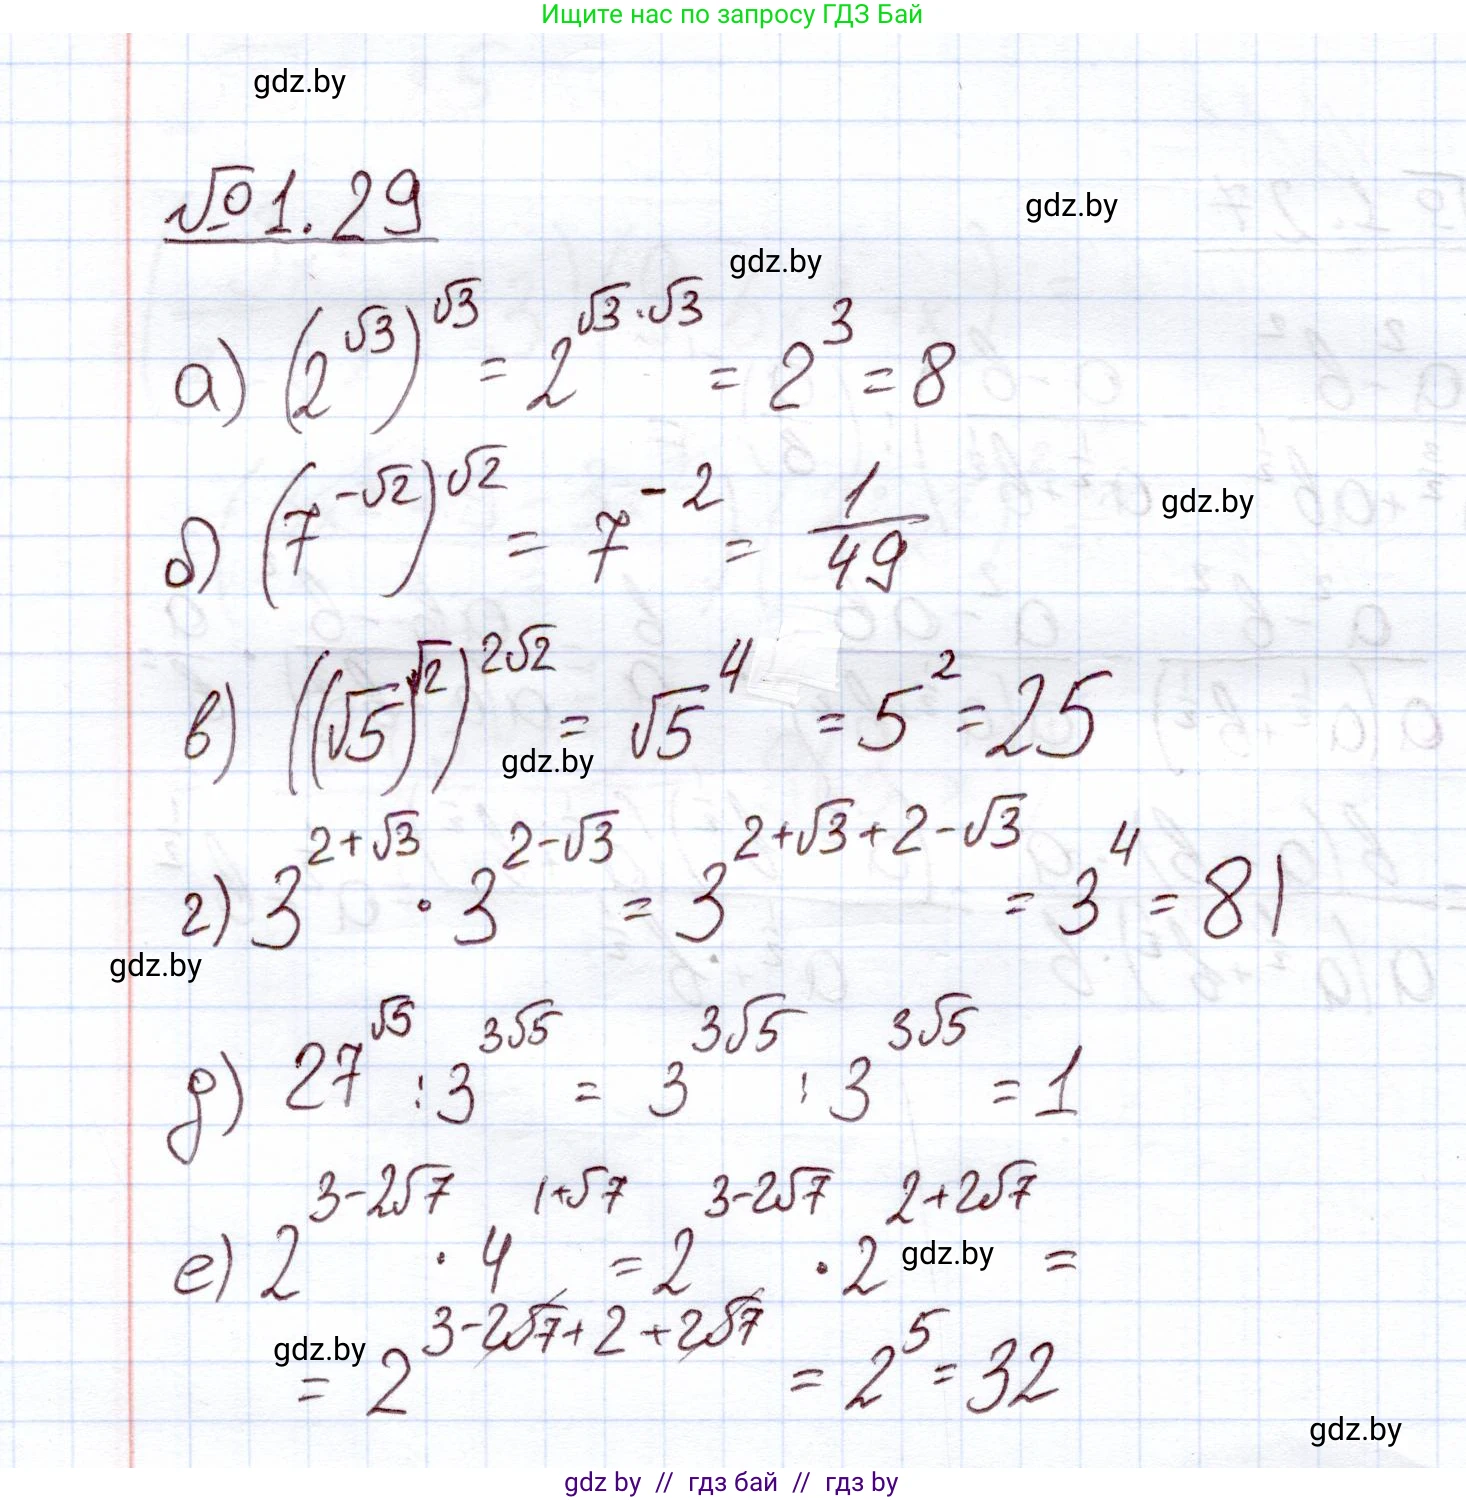 Ищите нас по запросу ГДЗ Бай
gdz.by
№ 1.29
gdz.by
gdz.by
а) (2^√3)^√3 = 2^(√3·√3) = 2^3 = 8
б) (7^(-√2))^√2 = 7^(-2) = 1/49
gdz.by
в) ((√5)^√2)^(2√2) = √5^4 = 5^2 = 25
gdz.by
г) 3^(2+√3) · 3^(2-√3) = 3^(2+√3+2-√3) = 3^4 = 81
gdz.by
д) 27^√5 : 3^(3√5) = 3^(3√5) : 3^(3√5) = 1
е) 2^(3-2√7) · 4^(1+√7) = 2^(3-2√7) · 2^(2+2√7) =
gdz.by
= 2^(3-2√7+2+2√7) = 2^5 = 32
gdz.by
gdz.by
gdz by // гдз бай // гдз by